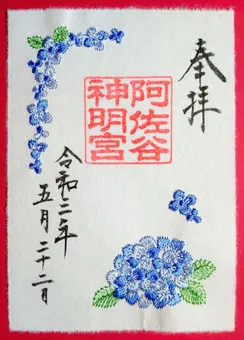 奉拝
阿佐谷
神明宮
令和三年
五月二十二日